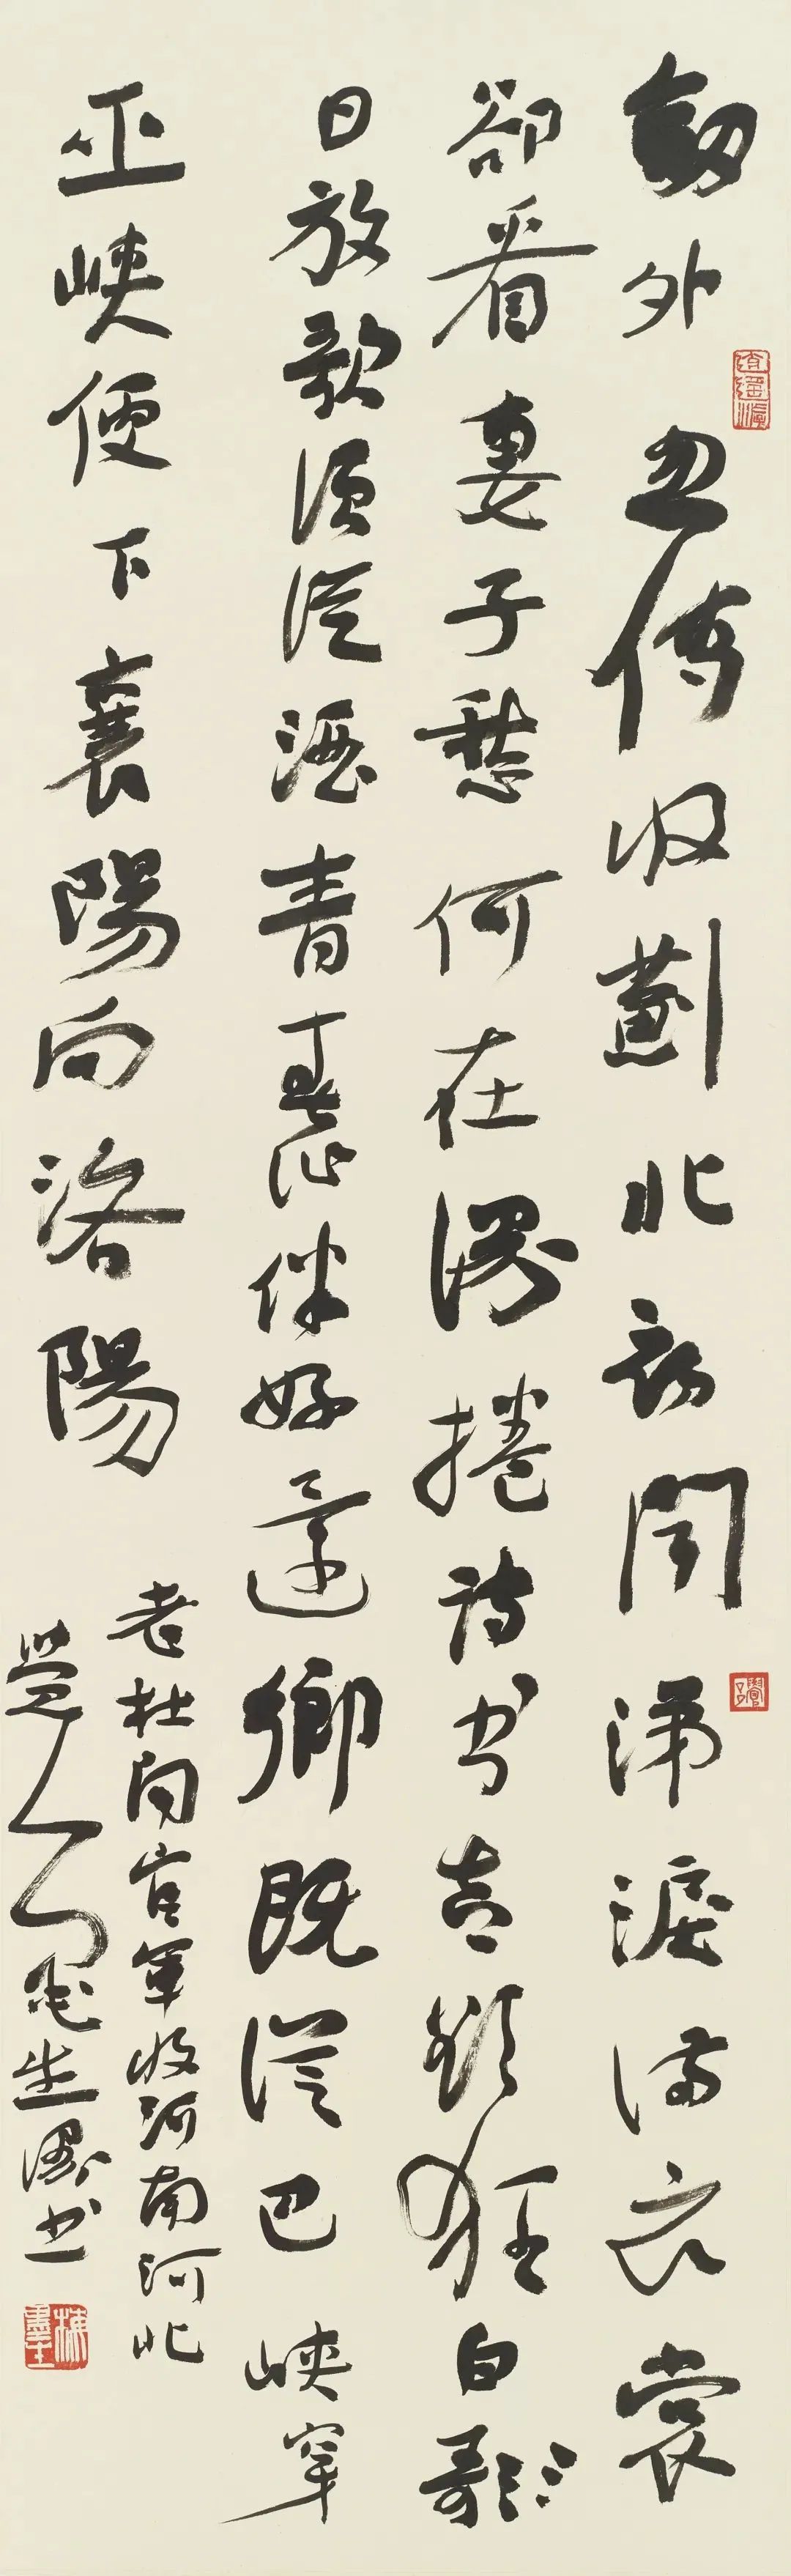 劍外忽傳收薊北初聞涕淚滿衣裳
卻看妻子愁何在漫捲詩書喜欲狂白歌
日放歌須縱酒青春作伴好還鄉既從巴峽穿
巫峽便下襄陽向洛陽
老杜聞官軍收河南河北
生
書
梅墨生